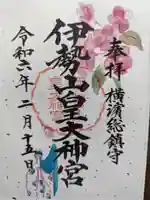 奉拝 横濱総鎮守
伊勢山皇大神宮
令和六年二月十五日